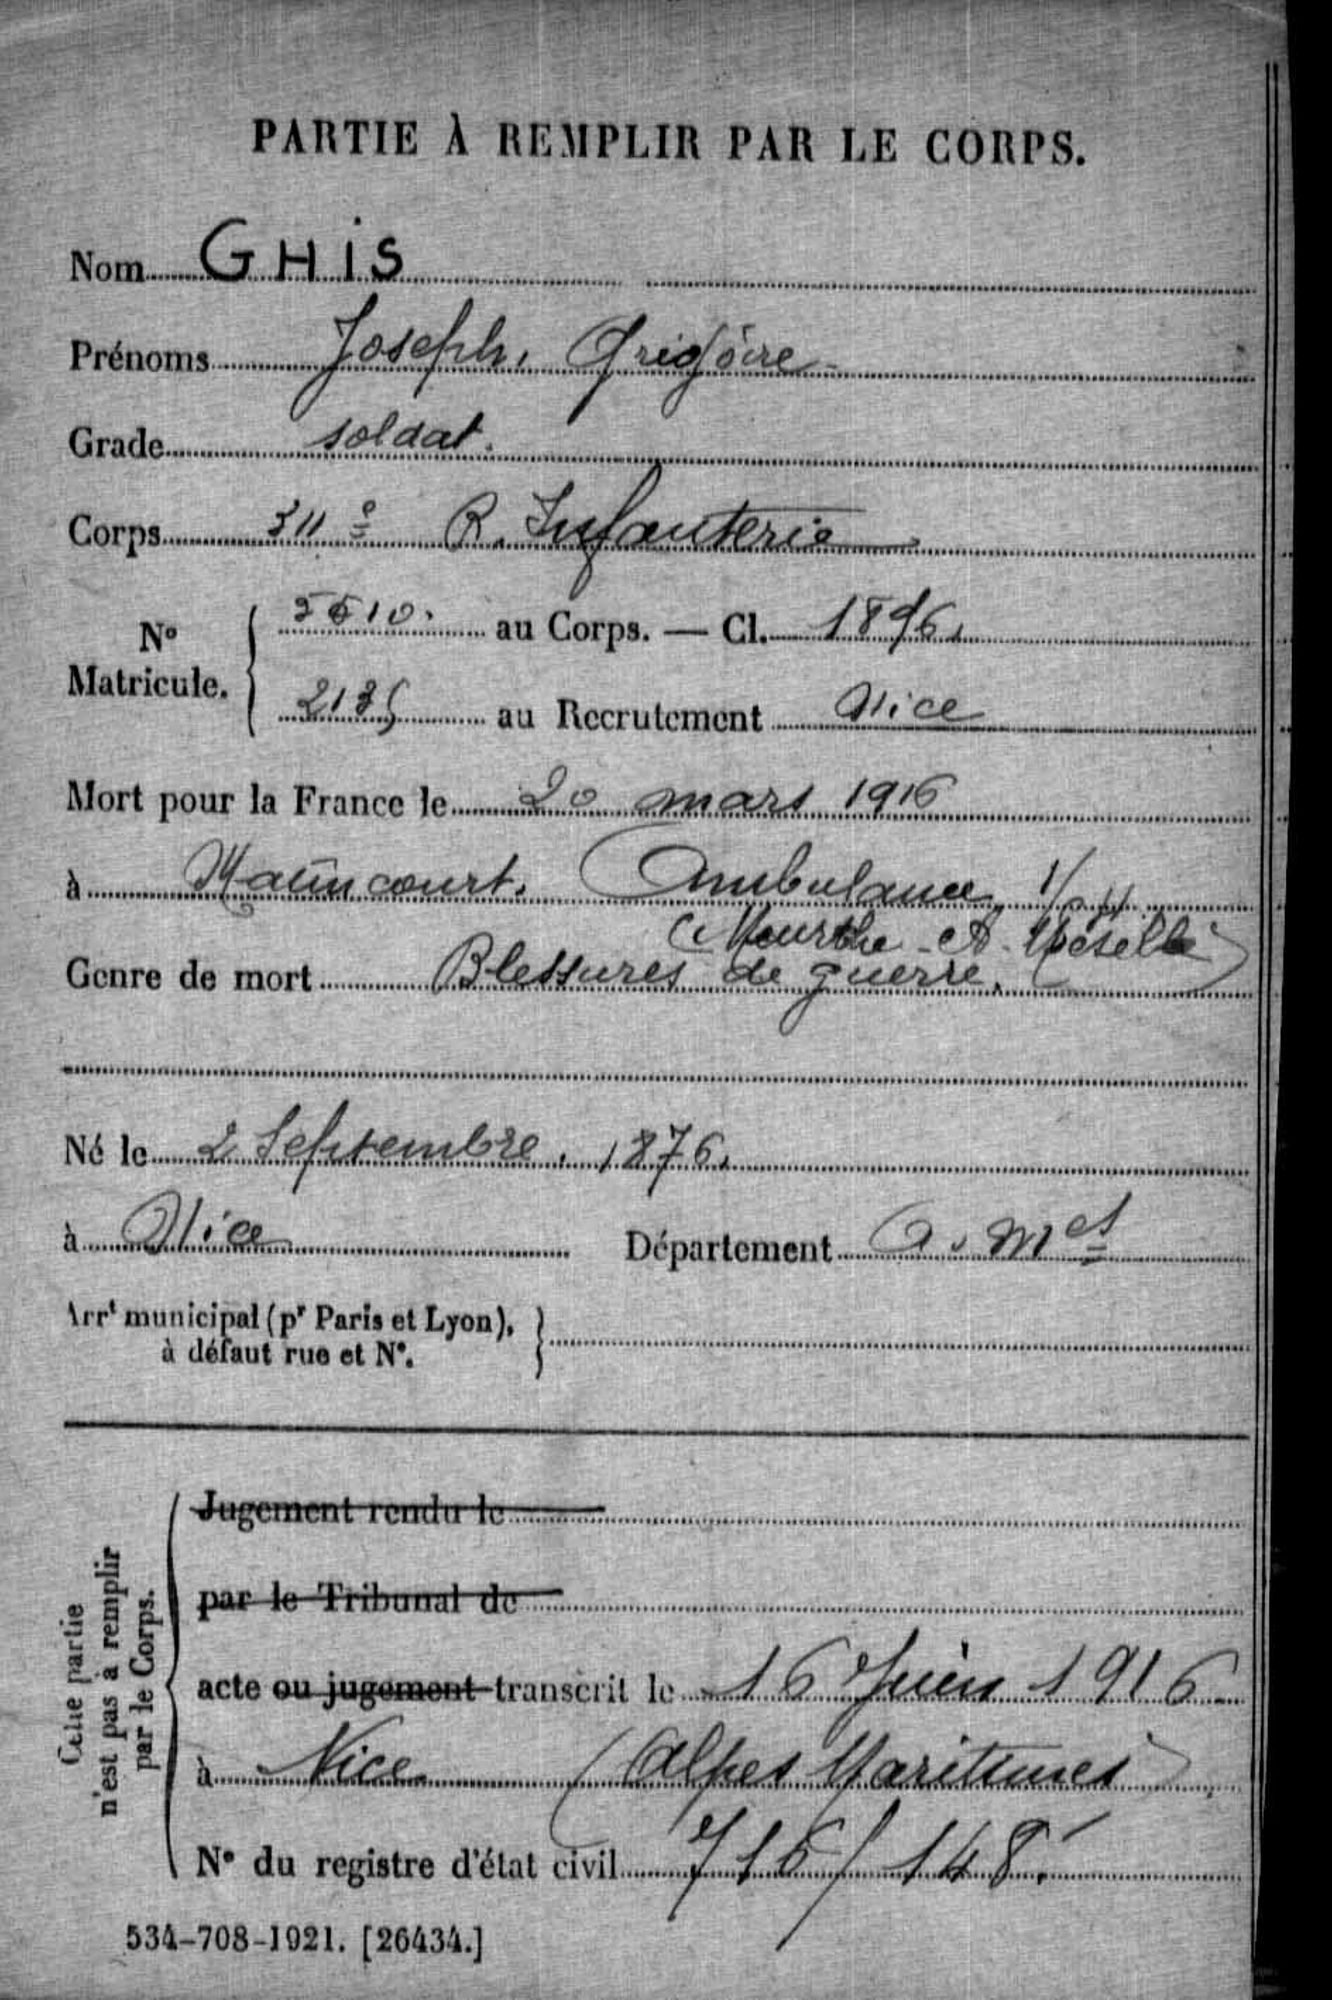 PARTIE À REMPLIR PAR LE CORPS.
Nom GHIS
Prénoms Joseph, Grégoire
Grade soldat.
Corps 311e R. Infanterie
No Matricule. 5610. au Corps. — Cl. 1896.
2135 au Recrutement Nice
Mort pour la France le 20 mars 1916
à Ambulance
(Meurthe-et-Moselle)
Genre de mort Blessures de guerre.
Né le 2 Septembre. 1876.
à Nice Département A. Mes
Arrt municipal (pr Paris et Lyon),
à défaut rue et No.
Cette partie
n'est pas à remplir
par le Corps.
Jugement rendu le
par le Tribunal de
acte ou jugement transcrit le 16 Juin 1916
à Nice (Alpes Maritimes)
No du registre d'état civil 716/148.
534-708-1921. [26434.]